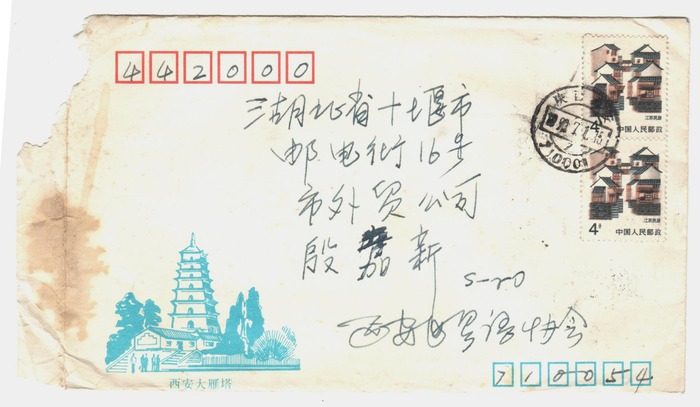 442000
湖北省十堰市
邮电街16号
市外贸公司
殷 新
西安 协会
710054
西安大雁塔
4
江苏民居
中国人民邮政
4分
江苏民居
中国人民邮政